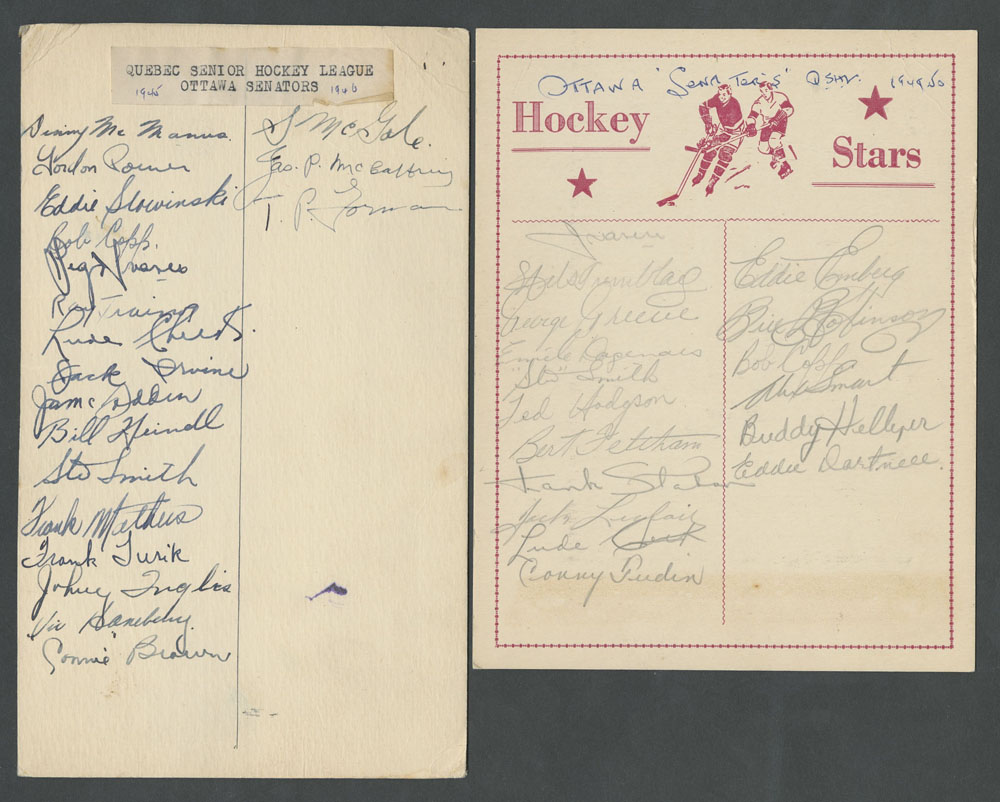 QUEBEC SENIOR HOCKEY LEAGUE
OTTAWA SENATORS
1945 1946
Denny Mc Manus
Gordon
Eddie Slowinski
Bob Copp.
Reg
Ray Trainor
Lude Check
Jack Irvine
Bill Heindl
Stu Smith
Frank Mathers
Frank Turik
Johnny Inglis
Vic
Connie Brown
S McGale.
Geo. P. McCaffrey
T. P. Gorman
OTTAWA 'SENATORS' QSHL. 1949 50
Hockey
Stars
Nils Tremblay
George Greene
Emile Dagenais
"Stu" Smith
Ted Hodgson
Bert Feltham
Frank
Jack Leclair
Lude Check
Conny Tudin
Eddie Emberg
Bill Robinson
Bob Copp
Alex Smart
Buddy Hellyer
Eddie Dartnell.